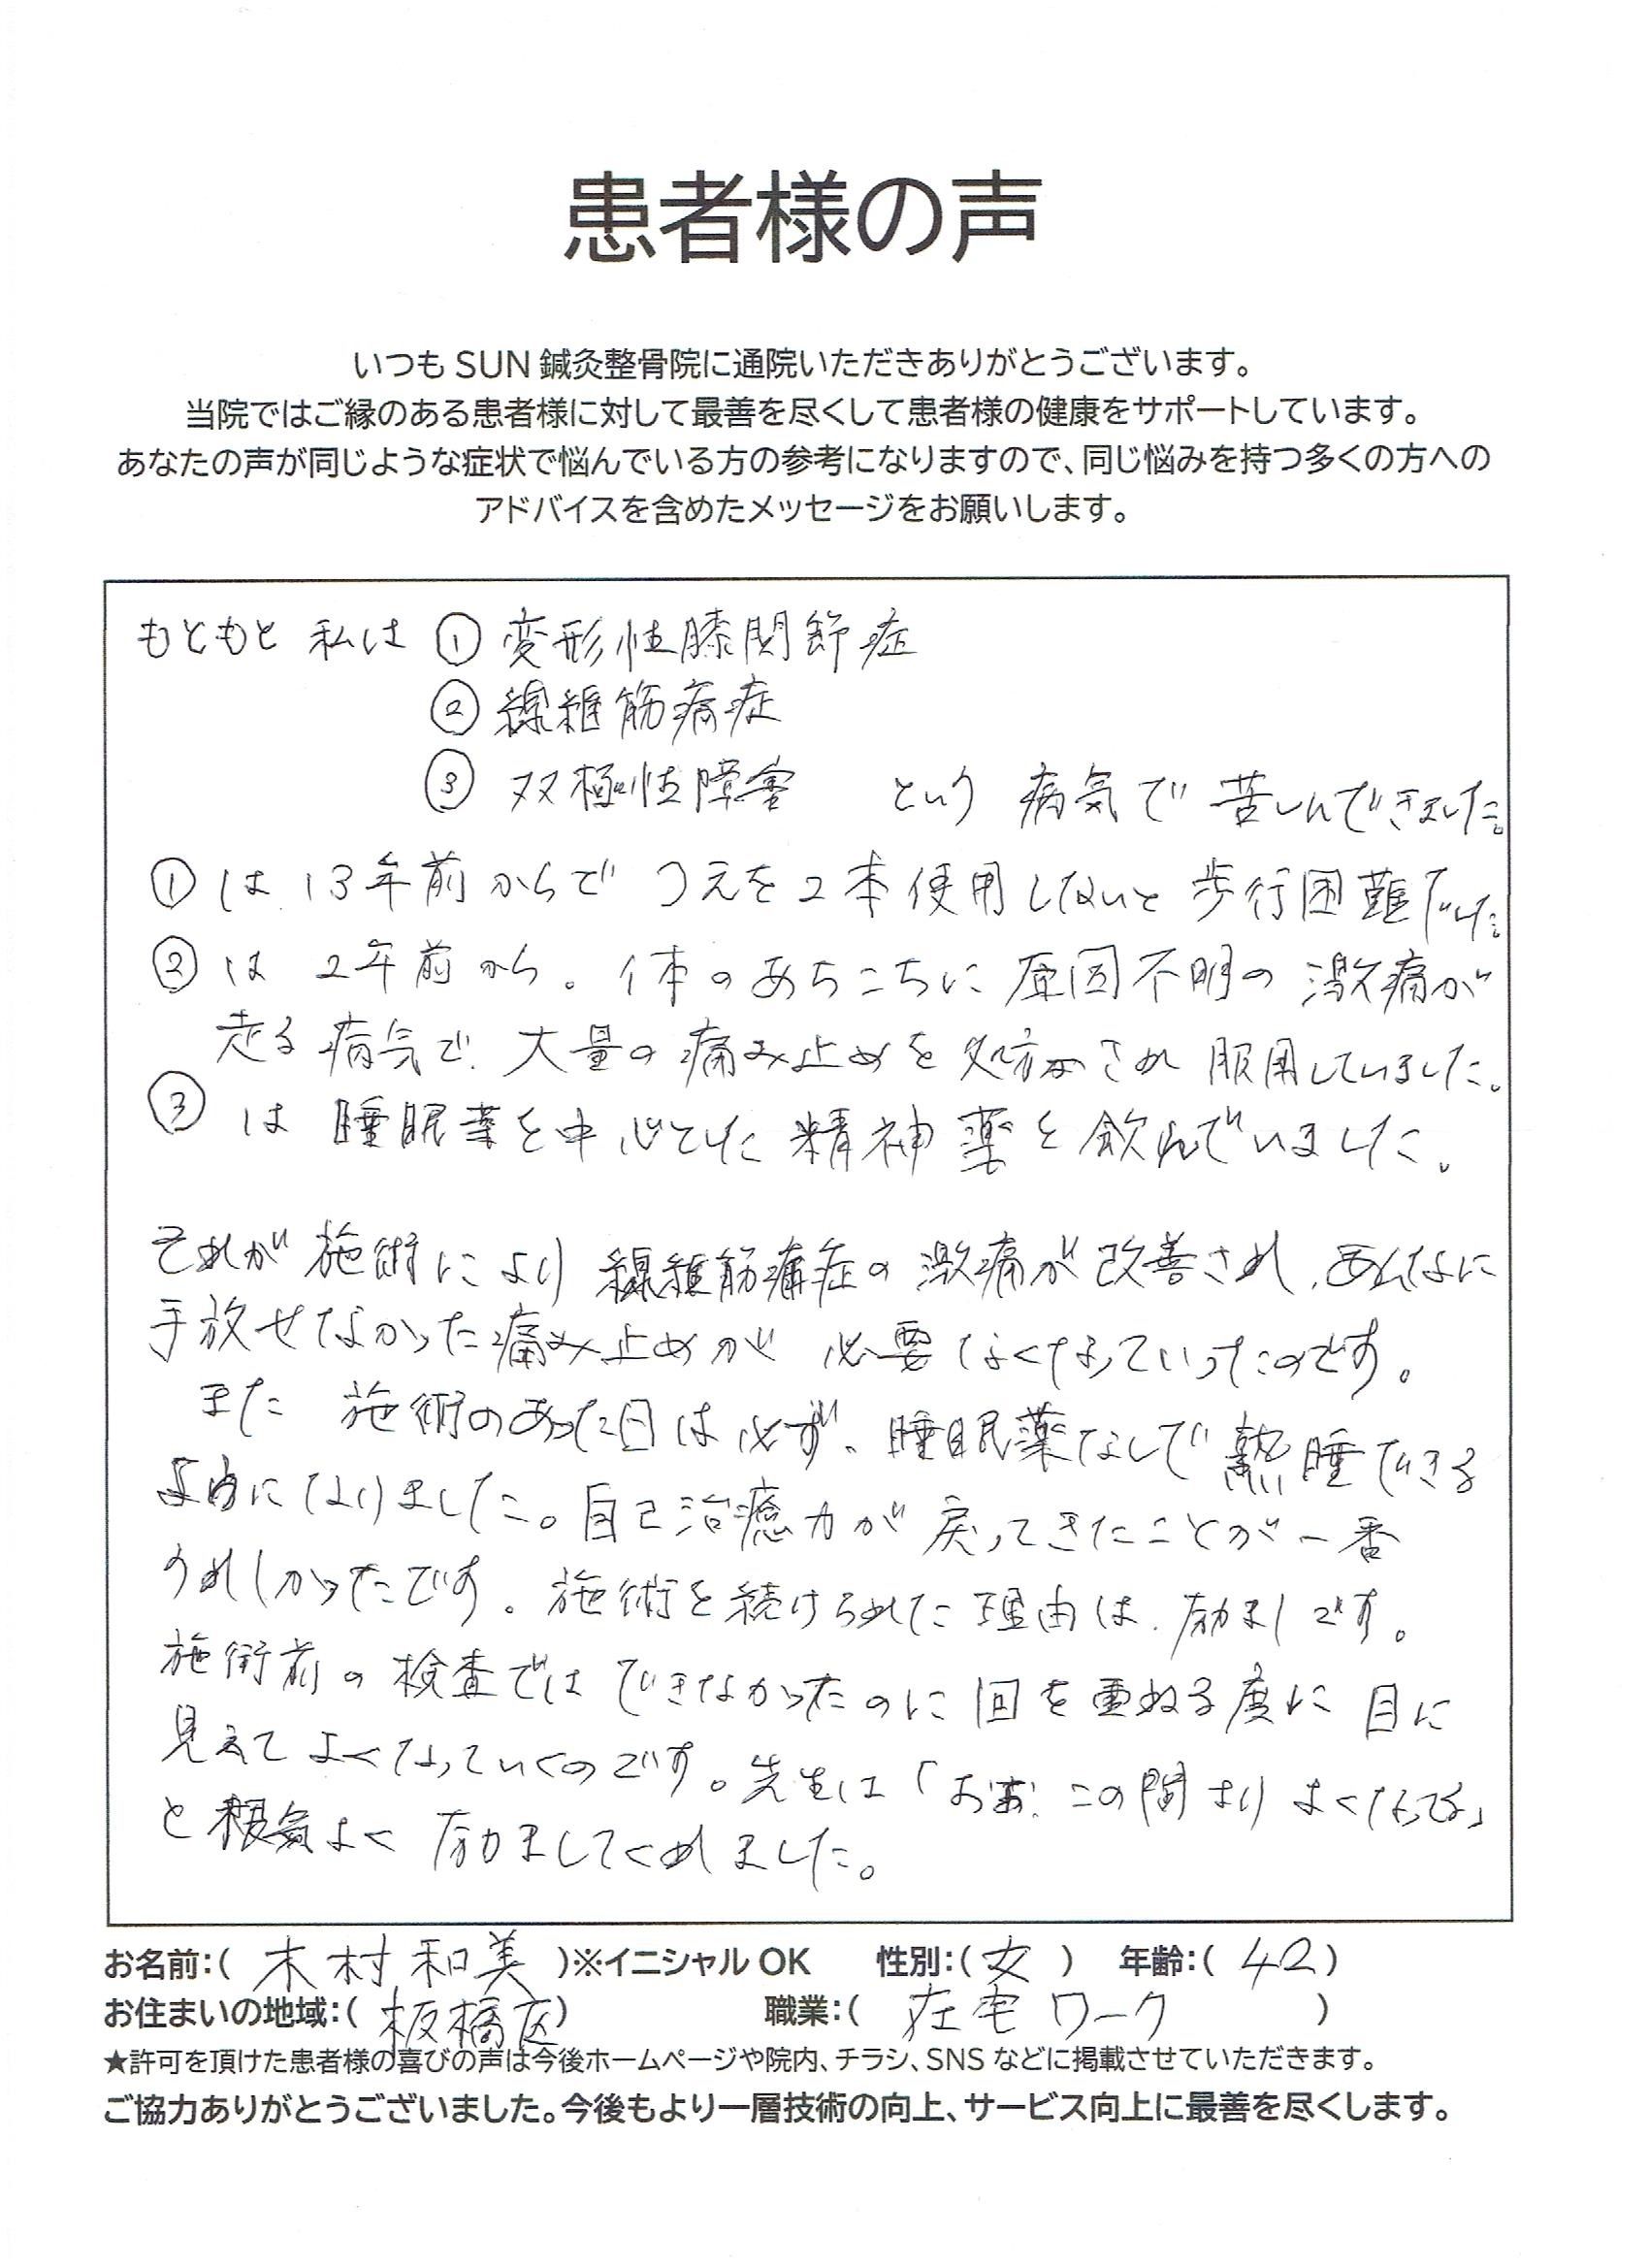 患者様の声
いつも SUN 鍼灸整骨院に通院いただきありがとうございます。
当院ではご縁のある患者様に対して最善を尽くして患者様の健康をサポートしています。
あなたの声が同じような症状で悩んでいる方の参考になりますので、同じ悩みを持つ多くの方への
アドバイスを含めたメッセージをお願いします。
もともと 私は ① 変形性膝関節症
② 線維筋痛症
③ 双極性障害 という 病気で 苦しんできました。
①は 13年前からで つえを2本使用しないと 歩行困難でした。
②は 2年前から。体のあちこちに 原因不明の 激痛が
走る病気で、大量の痛み止めを処方され 服用していました。
③は 睡眠薬を中心とした精神薬を飲んでいました。
それが施術により 線維筋痛症の激痛が改善され、あんなに
手放せなかった痛み止めが 必要なくなっていったのです。
また 施術のあった日は必ず、睡眠薬なしで 熟睡できる
ようになりました。自己治癒力が戻ってきたことが一番
うれしかったです。施術を続けられた理由は、励ましです。
施術前の検査ではできなかったのに 回を重ねる度に 目に
見えてよくなっていくのです。先生は「おお、この間より よくなってる」
と根気よく 励ましてくれました。
お名前:( 木村和美 )※イニシャル OK 性別:( 女 ) 年齢:( 42 )
お住まいの地域:( 板橋区 ) 職業:( 在宅ワーク )
★許可を頂けた患者様の喜びの声は今後ホームページや院内、チラシ、SNS などに掲載させていただきます。
ご協力ありがとうございました。今後もより一層技術の向上、サービス向上に最善を尽くします。